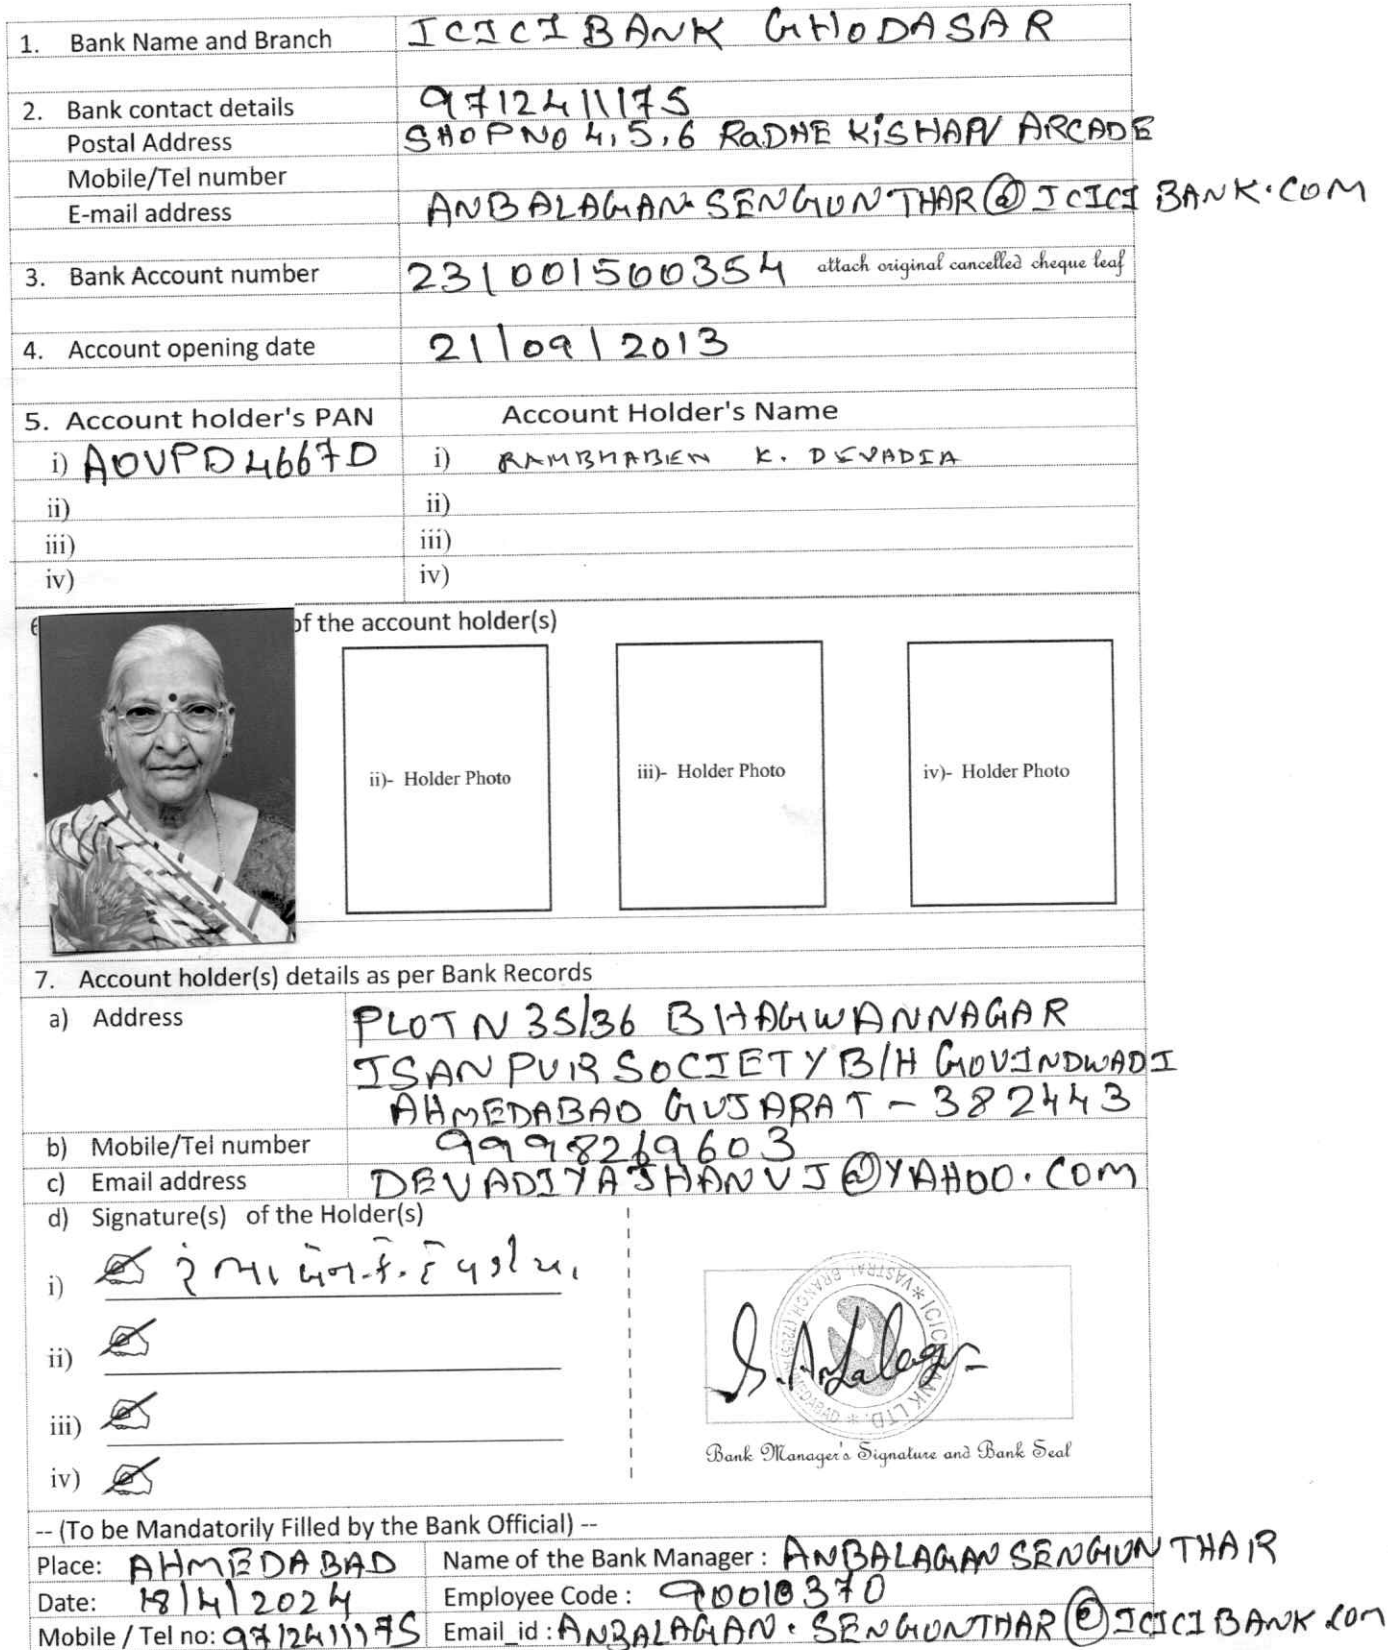 1. Bank Name and Branch ICICI BANK GHODASAR
2. Bank contact details 9712411175
Postal Address SHOP NO 4,5,6 RADHE KISHAN ARCADE
Mobile/Tel number
E-mail address ANBALAGAN.SENGUNTHAR@ICICIBANK.COM
3. Bank Account number 231001500354 attach original cancelled cheque leaf
4. Account opening date 21/09/2013
5. Account holder's PAN Account Holder's Name
i) AOVPD4667D i) RAMBHABEN K. DEVADIA
ii) ii)
iii) iii)
iv) iv)
of the account holder(s)
ii)- Holder Photo iii)- Holder Photo iv)- Holder Photo
7. Account holder(s) details as per Bank Records
a) Address PLOT N 35/36 BHAGWANNAGAR
ISANPUR SOCIETY B/H GOVINDWADI
AHMEDABAD GUJARAT - 382443
b) Mobile/Tel number 9998269603
c) Email address DEVADIYAJHANVJ@YAHOO.COM
d) Signature(s) of the Holder(s)
i)
ii)
iii)
iv)
S. Anbalagan
ICICI BANK LTD. * AHMEDABAD * VASTRAL BRANCH
Bank Manager's Signature and Bank Seal
-- (To be Mandatorily Filled by the Bank Official) --
Place: AHMEDABAD Name of the Bank Manager : ANBALAGAN SENGUNTHAR
Date: 18/4/2024 Employee Code : 90010370
Mobile / Tel no: 9712411175 Email_id : ANBALAGAN.SENGUNTHAR@ICICIBANK.COM